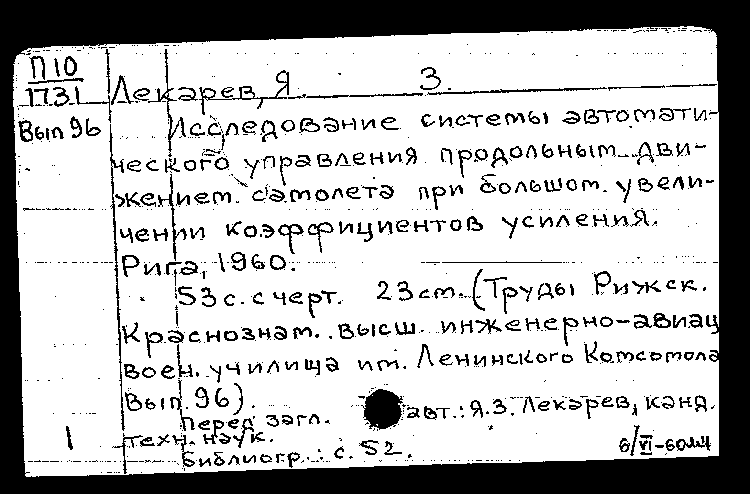 П10
1731
Лекарев, Я. З.
Вып 96
Исследование системы автомати-
ческого управления продольным дви-
жением самолета при большом увели-
чении коэффициентов усиления.
Рига, 1960.
53 с. с черт. 23 см. (Труды Рижск.
Краснознам. высш. инженерно-авиац
воен. училища им. Ленинского Комсомола
Вып. 96).
Перед загл. авт.: Я.З. Лекарев, канд.
техн. наук.
Библиогр.: с. 52.
1
6/VI-60